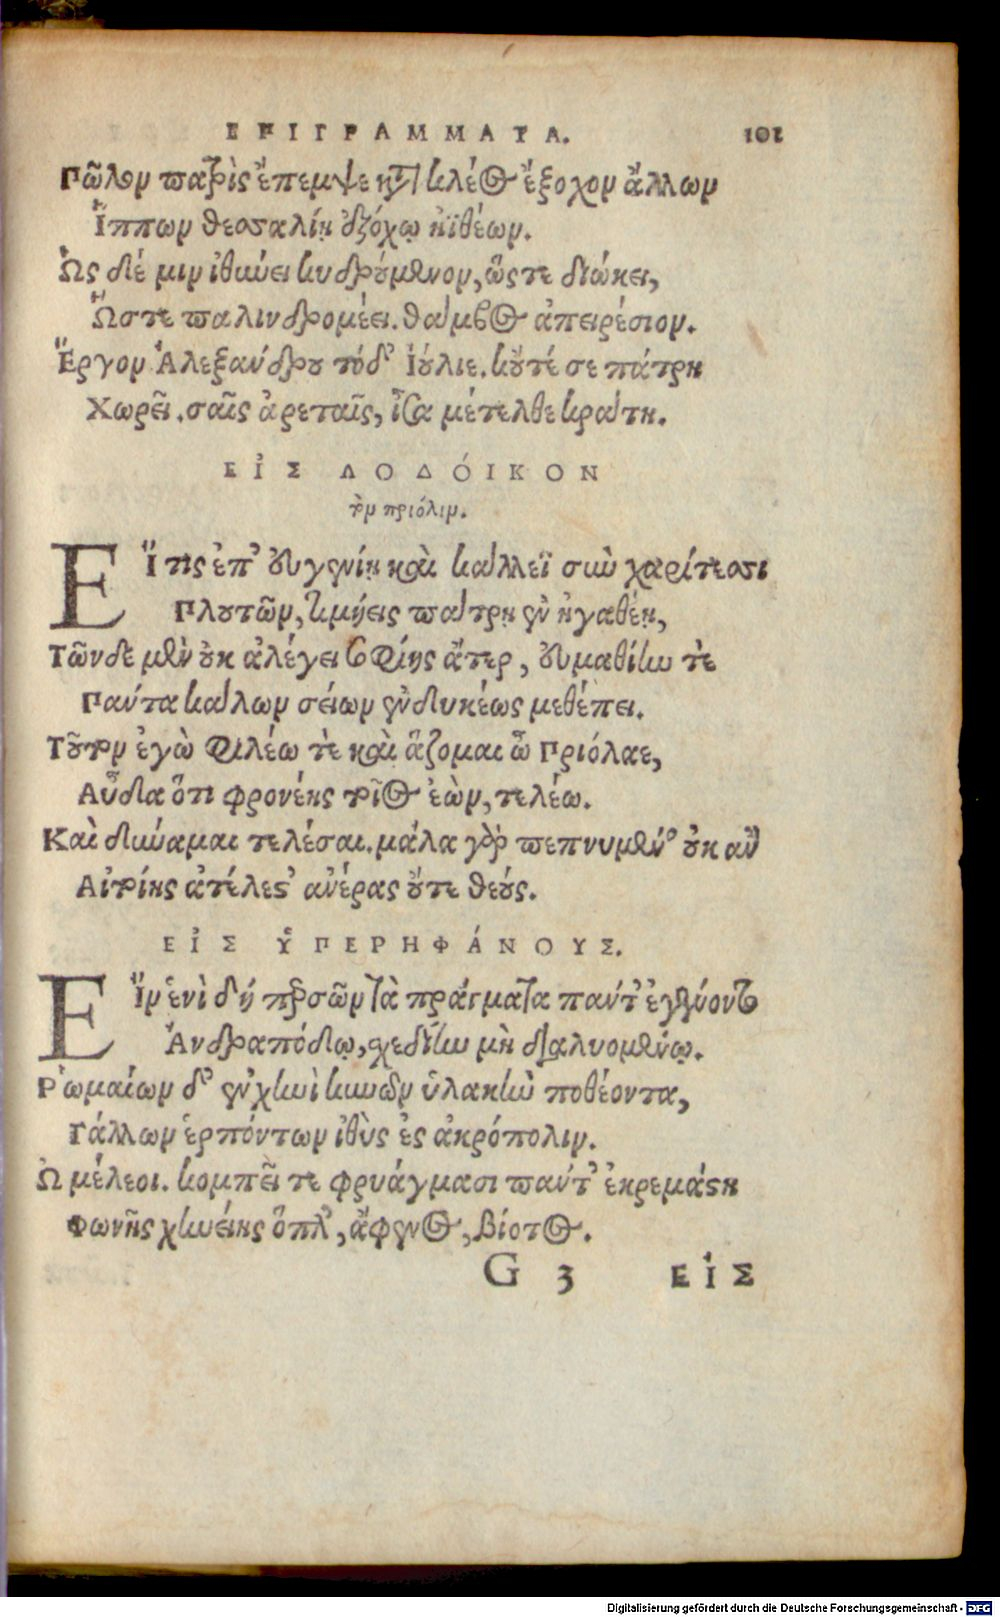 ΕΡΙΓΡΑΜΜΑΤΑ. 101
Πῶλον πατρὶς ἔπεμψε κατὰ κλέος ἔξοχον ἄλλων
Ἵππων θεσσαλίῃ ἐξόχῳ ἠϊθέων.
Ὡς δέ μιν ἰθύνει κυδρούμενον, ὥςτε διώκει,
Ὥστε παλινδρομέει. θαῦμβος ἀπειρέσιον.
Ἔργον Ἀλεξάνδρου τόδ' Ἰούλιε. κοὔτέ σε πάτρη
Χωρεῖ. σαῖς ἀρεταῖς, ἶσα μέτελθε κράτη.
ΕἸΣ ΛΟΔΌΙΚΟΝ
τὸν πριόλιν.
ΕἼ τις ἐπ' εὐγενίῃ καὶ κάλλεϊ σὺν χαρίτεσσι
Πλουτῶν, τιμήεις πάτρῃ ἐν ἠγαθέῃ,
Τῶνδε μὲν οὐκ ἀλέγει σοφίης ἄτερ, εὐμαθίην τὲ
Πάντα κάλων σείων ἐνδυκέως μεθέπει.
Τοῦτον ἐγὼ φιλέω τὲ καὶ ἅζομαι ὦ Πριόλαε,
Αὖδια ὅτι φρονέῃς τοῖος ἐὼν, τελέω.
Καὶ δύναμαι τελέσαι. μάλα γὰρ πεπνυμένος οὐκ ἂν
Αἰτοίης ἀτέλεστ' ἀνέρας οὔτε θεούς.
ΕἸΣ ὙΠΕΡΗΦΆΝΟΥΣ.
ΕἼν ἑνὶ δή προσῶν τὰ πράγματα πάντ' ἐγένοντο
Ἀνδραπόδῳ, σχεδίην μὴ διαλυομένῳ.
Ῥωμαίων δ' ἐν χηνὶ κυνῶν ὑλακὴν ποθέοντα,
Γάλλων ἑρπόντων ἰθὺς ἐς ἀκρόπολιν.
Ὦ μέλεοι. κομπεῖ τε φρυάγμασι πάντ' ἐκρεμάσθη
Φωνῆς χηνείης ὅπλ', ἄφενος, βίοτος.
G 3 ΕἸΣ
Digitalisierung gefördert durch die Deutsche Forschungsgemeinschaft - DFG